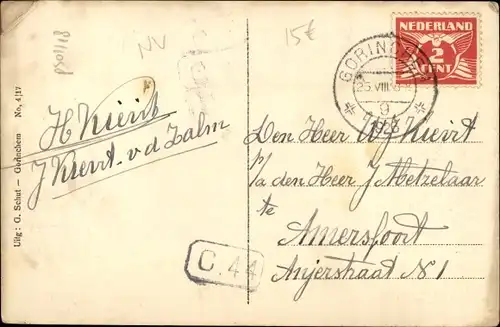 p30118
NV
15€
NEDERLAND
2
CENT
GORINCHEM
25.VIII
9
1943
H Kievit
J Kievit-v.d Zalm
Den Heer A J Kievit
p/a den Heer J Metzelaar
te
Amersfoort
Anjerstraat N 1
C.44
Uitg: G. Schut - Gorinchem No. 417